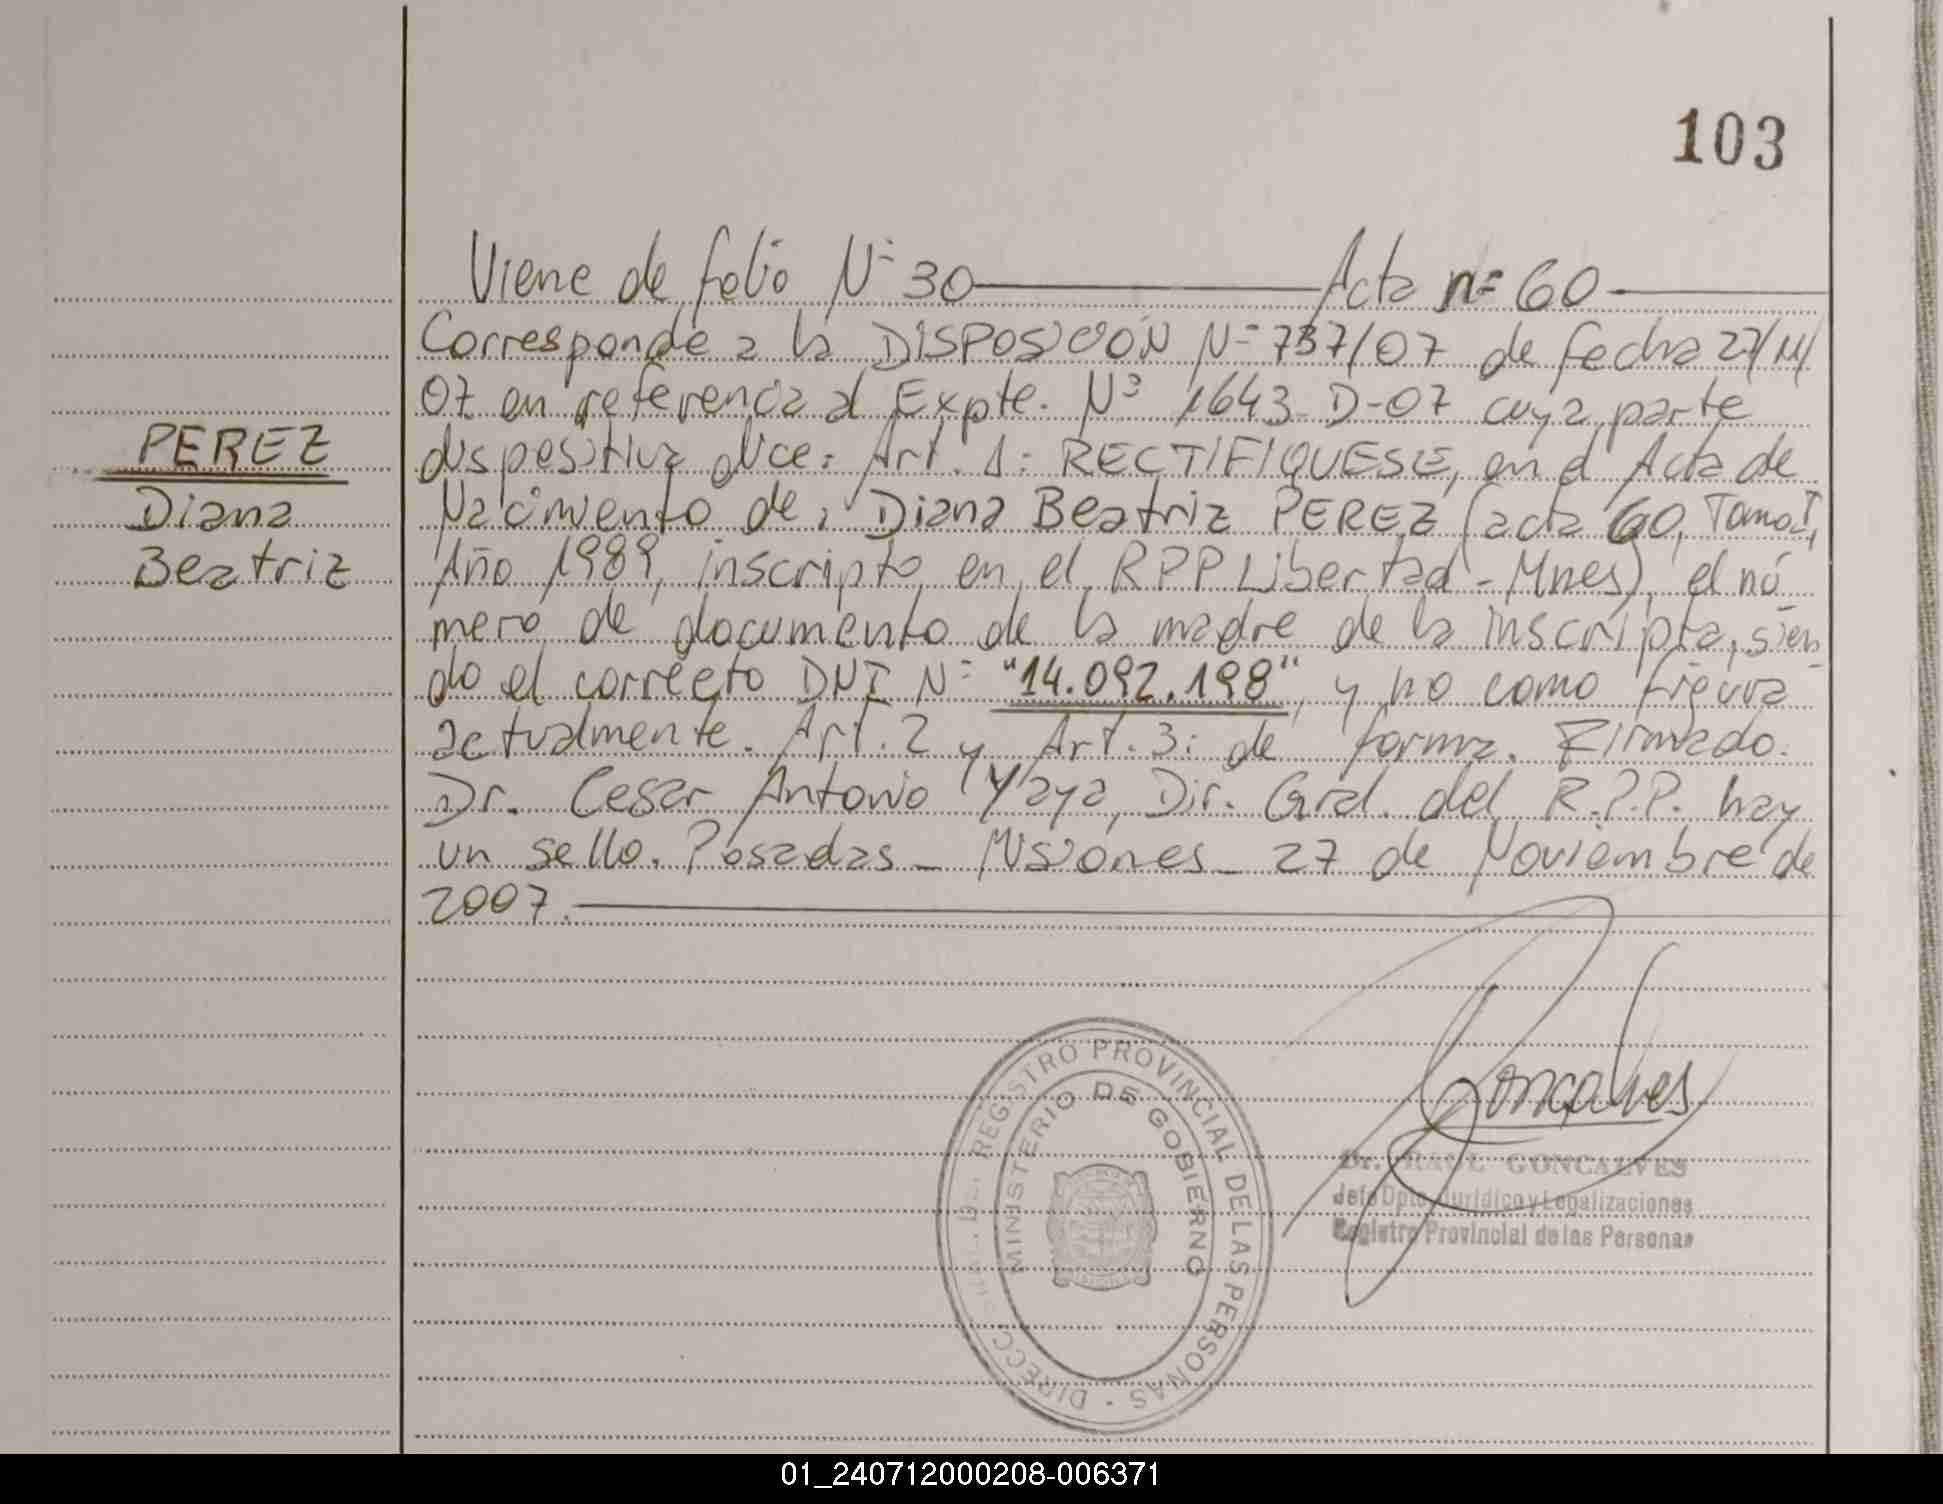 103
Viene de folio Nº 30 — Acta nº 60 —
Corresponde a la DISPOSICIÓN Nº 737/07 de fecha 27/11/
07 en referencia al Expte. Nº 1643-D-07 cuya parte
dispositiva dice: Art. 1: RECTIFIQUESE, en el Acta de
Nacimiento de: Diana Beatriz PEREZ (acta 60, Tomo I,
Año 1989, inscripto en el RPP Libertad - Mnes), el nú
mero de documento de la madre de la inscripta, sien
do el correcto DNI Nº "14.092.198", y no como figura
actualmente. Art. 2 y Art. 3: de forma. Firmado.
Dr. Cesar Antonio Yaya, Dir. Gral. del R.P.P. hay
un sello. Posadas - Misiones - 27 de Noviembre de
2007.
PEREZ
Diana
Beatriz
DIRECC DEL REGISTRO PROVINCIAL DE LAS PERSONAS -
MINISTERIO DE GOBIERNO
Goncalves
Dr. RAUL GONCALVES
Jefe Dpto. Jurídico y Legalizaciones
Registro Provincial de las Personas
01_240712000208-006371